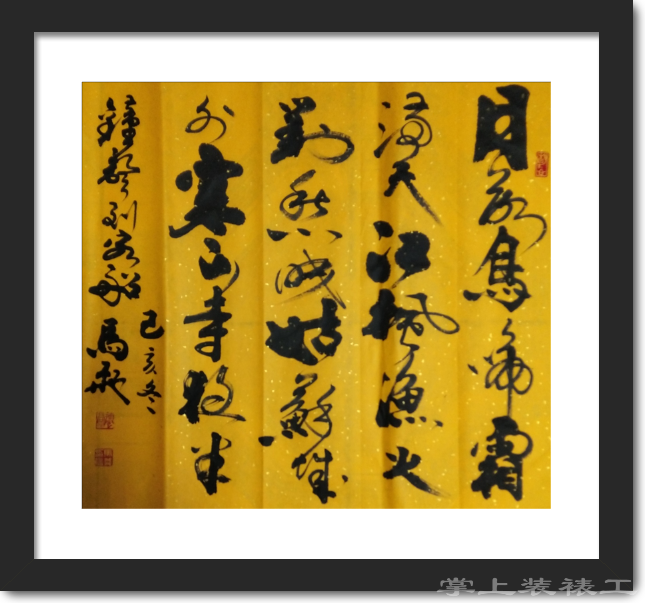 月落烏啼霜
滿天江楓漁火
對愁眠姑蘇城
外寒山寺夜半
鐘聲到客船
己亥冬
馬
掌上装裱工